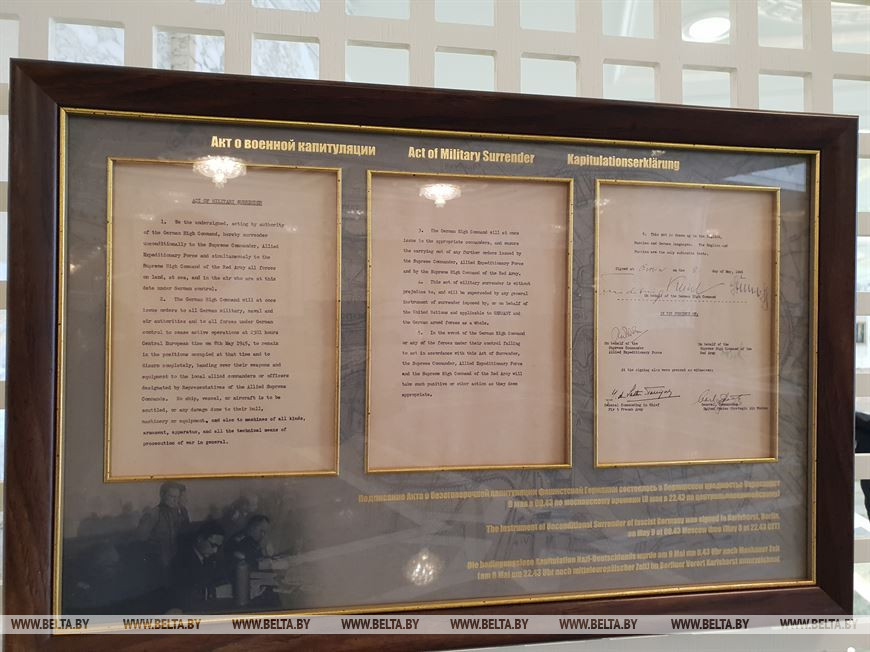 Акт о военной капитуляции
Act of Military Surrender
Kapitulationserklärung
ACT OF MILITARY SURRENDER
1. We the undersigned, acting by authority
of the German High Command, hereby surrender
unconditionally to the Supreme Commander, Allied
Expeditionary Force and simultaneously to the
Supreme High Command of the Red Army all forces
on land, at sea, and in the air who are at this
date under German control.
2. The German High Command will at once
issue orders to all German military, naval and
air authorities and to all forces under German
control to cease active operations at 2301 hours
Central European time on 8th May 1945, to remain
in the positions occupied at that time and to
disarm completely, handing over their weapons and
equipment to the local allied commanders or officers
designated by Representatives of the Allied Supreme
Commands. No ship, vessel, or aircraft is to be
scuttled, or any damage done to their hull,
machinery or equipment, and also to machines of all kinds,
armament, apparatus, and all the technical means of
prosecution of war in general.
3. The German High Command will at once
issue to the appropriate commanders, and ensure
the carrying out of any further orders issued by
the Supreme Commander, Allied Expeditionary Force
and by the Supreme High Command of the Red Army.
4. This act of military surrender is without
prejudice to, and will be superseded by any general
instrument of surrender imposed by, or on behalf of
the United Nations and applicable to GERMANY and
the German armed forces as a whole.
5. In the event of the German High Command
or any of the forces under their control failing
to act in accordance with this Act of Surrender,
the Supreme Commander, Allied Expeditionary Force
and the Supreme High Command of the Red Army will
take such punitive or other action as they deem
appropriate.
6. This Act is drawn up in the English,
Russian and German languages. The English and
Russian are the only authentic texts.
Signed at Berlin on the 8. day of May, 1945
On behalf of the German High Command
IN THE PRESENCE OF:
On behalf of the
Supreme Commander
Allied Expeditionary Force
On behalf of the
Supreme High Command of the
Red Army
At the signing also were present as witnesses:
General Commanding in Chief
First French Army
General, Commanding
United States Strategic Air Forces
Подписание Акта о безоговорочной капитуляции фашистской Германии состоялось в берлинском предместье Карлсхорст
9 мая в 00.43 по московскому времени (8 мая в 22.43 по центральноевропейскому)
The Instrument of Unconditional Surrender of fascist Germany was signed in Karlshorst, Berlin,
on May 9 at 00.43 Moscow time (May 8 at 22.43 CET)
Die bedingungslose Kapitulation Nazi-Deutschlands wurde am 9 Mai um 0.43 Uhr nach Moskauer Zeit
(am 8 Mai um 22.43 Uhr nach mitteleuropäischer Zeit) im Berliner Vorort Karlshorst unterzeichnet
WWW.BELTA.BY WWW.BELTA.BY WWW.BELTA.BY WWW.BELTA.BY WWW.BELTA.BY WWW.BELTA.BY WWW.BELTA.BY WWW.BELTA.BY